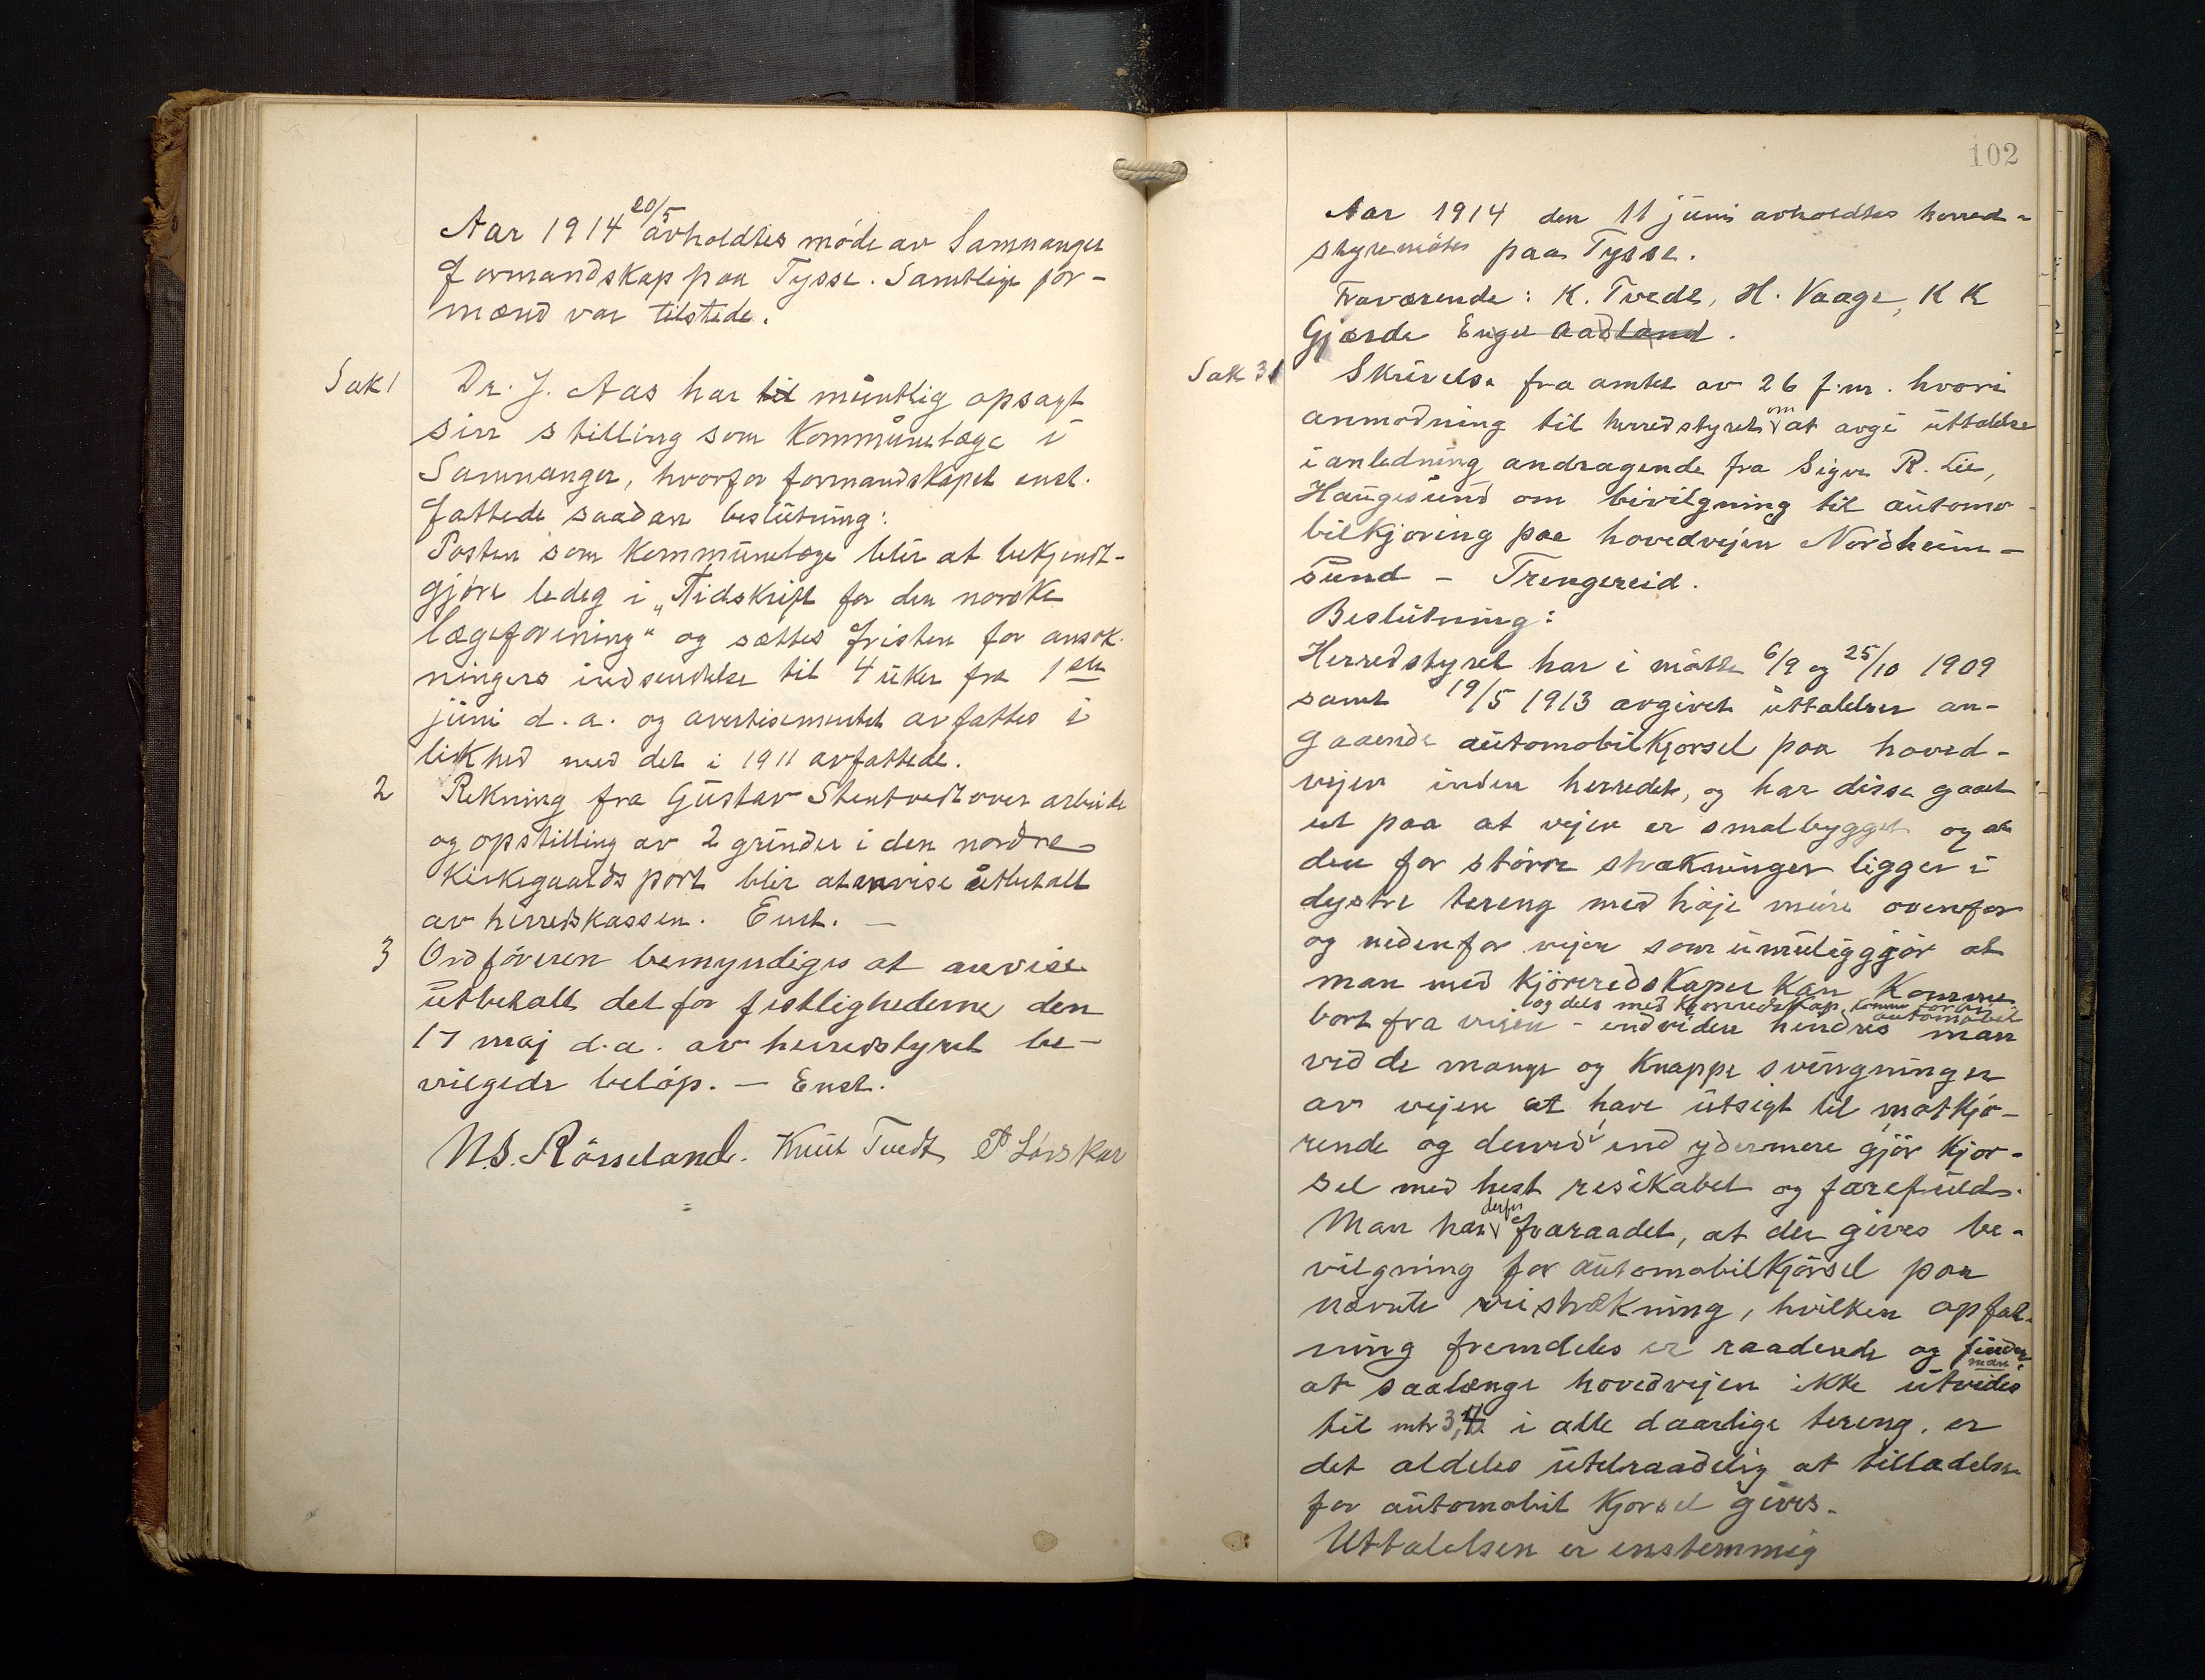 Aar 1914 20/5 avholdtes möde av Samnanger
formandskap paa Tysse. Samtlige for-
mænd var tilstede.
Sak 1 Dr. J. Aas har til muntlig opsagt
sin stilling som Kommunelæge i
Samnanger, hvorfor formandskapet enst.
fattede saadan beslutning:
Posten som Kommunelæge blir at bekjendt-
gjöre ledig i „Tidskrift for den norske
lægeforening" og sættes fristen for ansök-
ningers indsendelse til 4 uker fra 1ste
juni d.a. og avertisementet avfattes i
likhed med det i 1911 avfattede.
2 Rekning fra Gustav Stentvedt over arbeide
og opstilling av 2 grinder i den nordre
Kirkegaards port blir at anvise utbetalt
av herredskassen. Enst. —
3 Ordföreren bemyndiges at anvise
utbetalt det for festlighederne den
17 maj d.a. av herredstyret be-
vilgede belöp. — Enst.
N.S. Rösseland. Knut Tvedt P Lövskar
102
Aar 1914 den 11 juni avholdtes herred-
styremötes paa Tysse.
Fraværende: K. Tvedt, H. Vaage, K K
Gjærde Engel Aadland.
Sak 31 Skrivelse fra amtet av 26 f.m. hvori
anmodning til herredstyret om at avgi uttalelse
i anledning andragende fra Sigv. R. Lie,
Haugesund om bivilgning til automo-
bilkjöring paa hovedvejen Nordheim-
sund - Trengereid.
Beslutning:
Herredstyret har i möte 6/9 og 25/10 1909
samt 19/5 1913 avgivet uttalelser an-
gaaende automobilkjörsel paa hoved-
vejen inden herredet, og har disse gaaet
ut paa at vejen er smalbygget og at
den for större strækninger ligger i
dystre tereng med höje mure ovenfor
og nedenfor vejen som umuliggjör at
man med kjöreredskaper kan komme
og dels med kjöreredskap komme forbi automobil
bort fra vejen - endvidere hindres man
ved de mange og knappe svingninger
av vejen at have utsigt til motkjö-
rende og derved end ydermere gjör kjör-
sel med hest risikabel og farefuld.
Man har derfor fraraadet, at der gives be-
vilgning for automobilkjörsel paa
nævnte veistrækning, hvilken opfat-
ning fremdeles er raadende og finder
man
at saalænge hovedvejen ikke utvides
til mtr 3,4 i alle daarlige tereng, er
det aldeles utilraadelig at tilladelse
for automobil kjörsel gives.
Uttalelsen er enstemmig